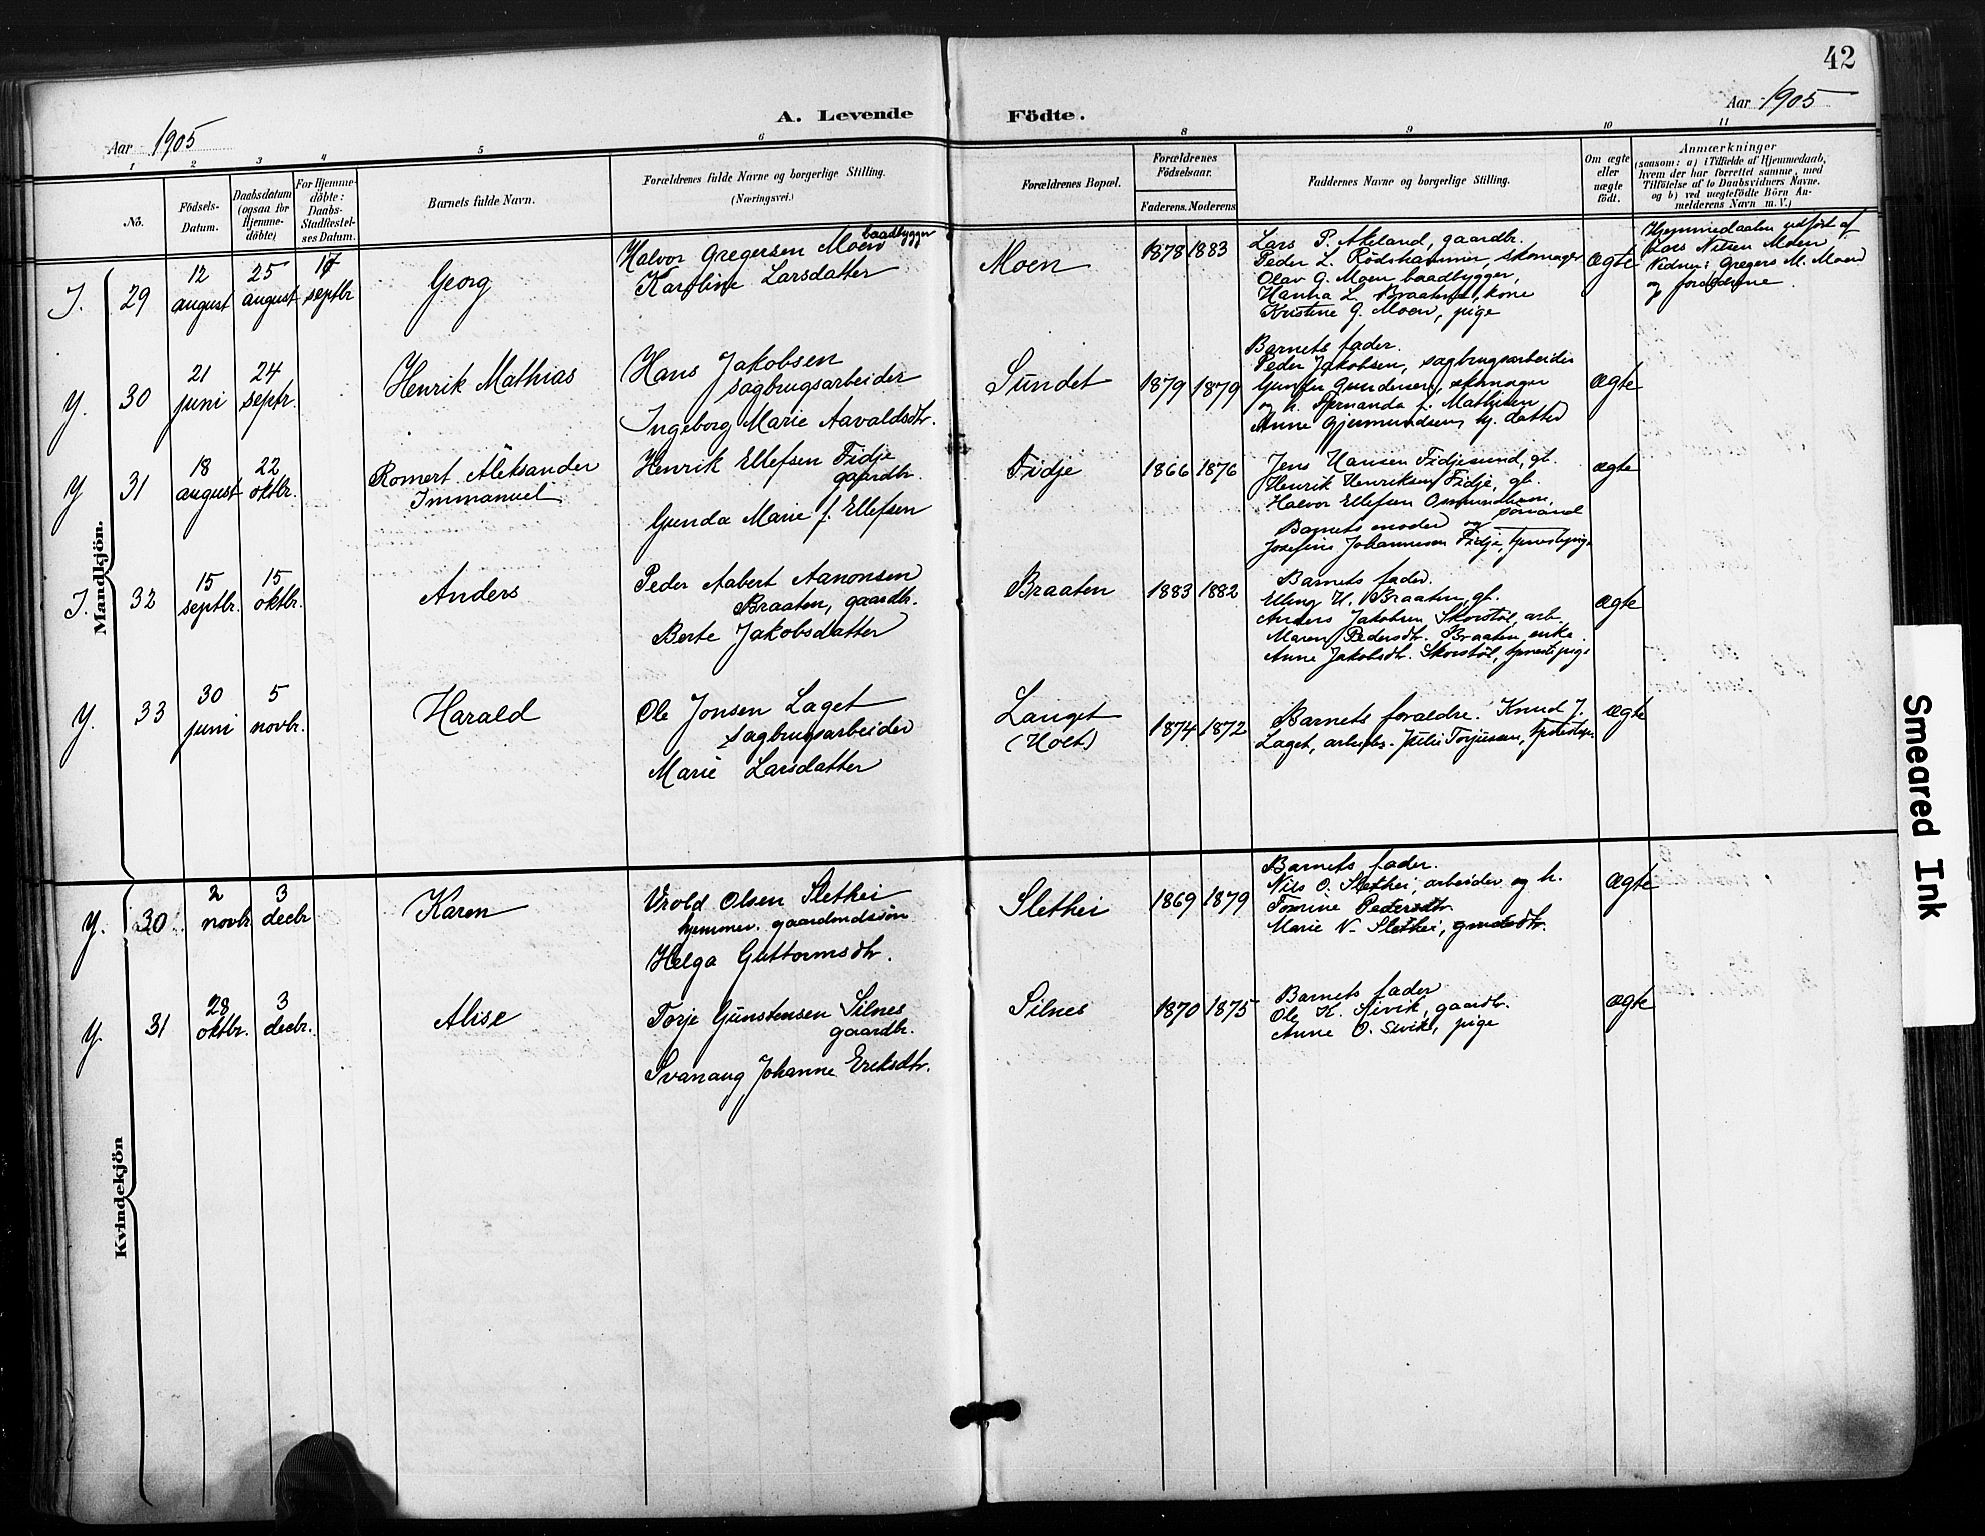 42
Aar 1905
A. Levende Födte.
Aar 1905
1 2 3 4 5 6 8 9 10 11
No.
Födsels-
Datum.
Daabsdatum
(ogsaa for
Hjemme-
döbte)
For Hjemme-
döbte:
Daabs-
Stadfæstel-
ses Datum.
Barnets fulde Navn.
Forældrenes fulde Navne og borgerlige Stilling.
(Næringsvei.)
Forældrenes Bopæl.
Forældrenes
Födselsaar.
Faderens. Moderens
Faddernes Navne og borgerlige Stilling.
Om ægte
eller
uægte
födt.
Anmærkninger
(saasom: a) i Tilfælde af Hjemmedaab,
hvem der har forrettet samme, med
Tilföielse af to Daabsvidners Navne.
og b) ved uægtefödte Börn An-
melderens Navn m. V.)
Mandkjön.
J. 29
12
august
25
august
17
septbr
Georg
Halvor Gregersen Moen baadbygger
Karoline Larsdatter
Moen
1878 1883
Lars P. Akeland, gaardbr.
Peder L. Rödshammer, skomager
Olav G. Moen, baadbygger,
Hanna L. Braaten, kone
Kristine G. Moen, pige
ægte
Hjemmedaaben udfört af
Lars Nilsen Moen
Vidner: Gregers M. Moen
og forældrene.
Y. 30
21
juni
24
septr.
Henrik Mathias
Hans Jakobsen
sagbrugsarbeider
Ingeborg Marie Aavaldsdtr.
Sundet
1879 1879
Barnets fader.
Peder Jakobsen, sagbrugsarbeider
Gundersen, skomager
og h. Fernanda f. Mathisen
Anne Gjermundsen, hj. datter
ægte
Y 31
18
august
22
oktbr.
Romert Aleksander
Immanuel
Henrik Ellefsen Fidje
gaardbr.
Gunda Marie f. Ellefsen
Fidje
1866 1876
Jens Hansen Fidjesund, gb.
Henrik Henriksen Fidje, gb.
Halvor Ellefsen Osmundhavn,
sömand
Barnets moder og
Josefine Johannesen Fidje, tjenestepige
ægte
J. 32
15
septbr.
15
oktbr.
Anders
Peder Aabert Aanonsen
Braaten, gaardbr.
Berte Jakobsdatter
Braaten
1883 1882
Barnets fader.
Elling H. Braaten, gb.
Anders Jakobsen Skorstöl, arb.
Maren Pedersdtr. Braaten, enke.
Anne Jakobsdtr. Skorstöl, tjenestepige
ægte
Y. 33
30
juni
5
novbr.
Harald
Ole Jonsen Laget
sagbrugsarbeider
Marie Larsdatter
Langet
(Holt)
1874 1872
Barnets forældre. Knud J.
Laget, arbeider. Torjussen, tjenestepi.
ægte
Kvindekjön
Y. 30
2
novbr
3
decbr
Karen
Vrold Olsen Slethei
hjemmev. gaardmdssön
Helga Guttormsdtr.
Slethei
1869 1879
Barnets fader.
Nils O. Slethei, arbeider og h.
Tomine Pedersdtr
Marie N. Slethei,
ægte
Y. 31
28
oktbr.
3
decbr.
Alise
Torje Gunstensen Silnes
gaardbr.
Svanaug Johanne Eriksdtr.
Silnes
1870 1875
Barnets fader
Ole K. Sivik, gaardbr.
Anne O. Sivik, pige
ægte
Smeared Ink